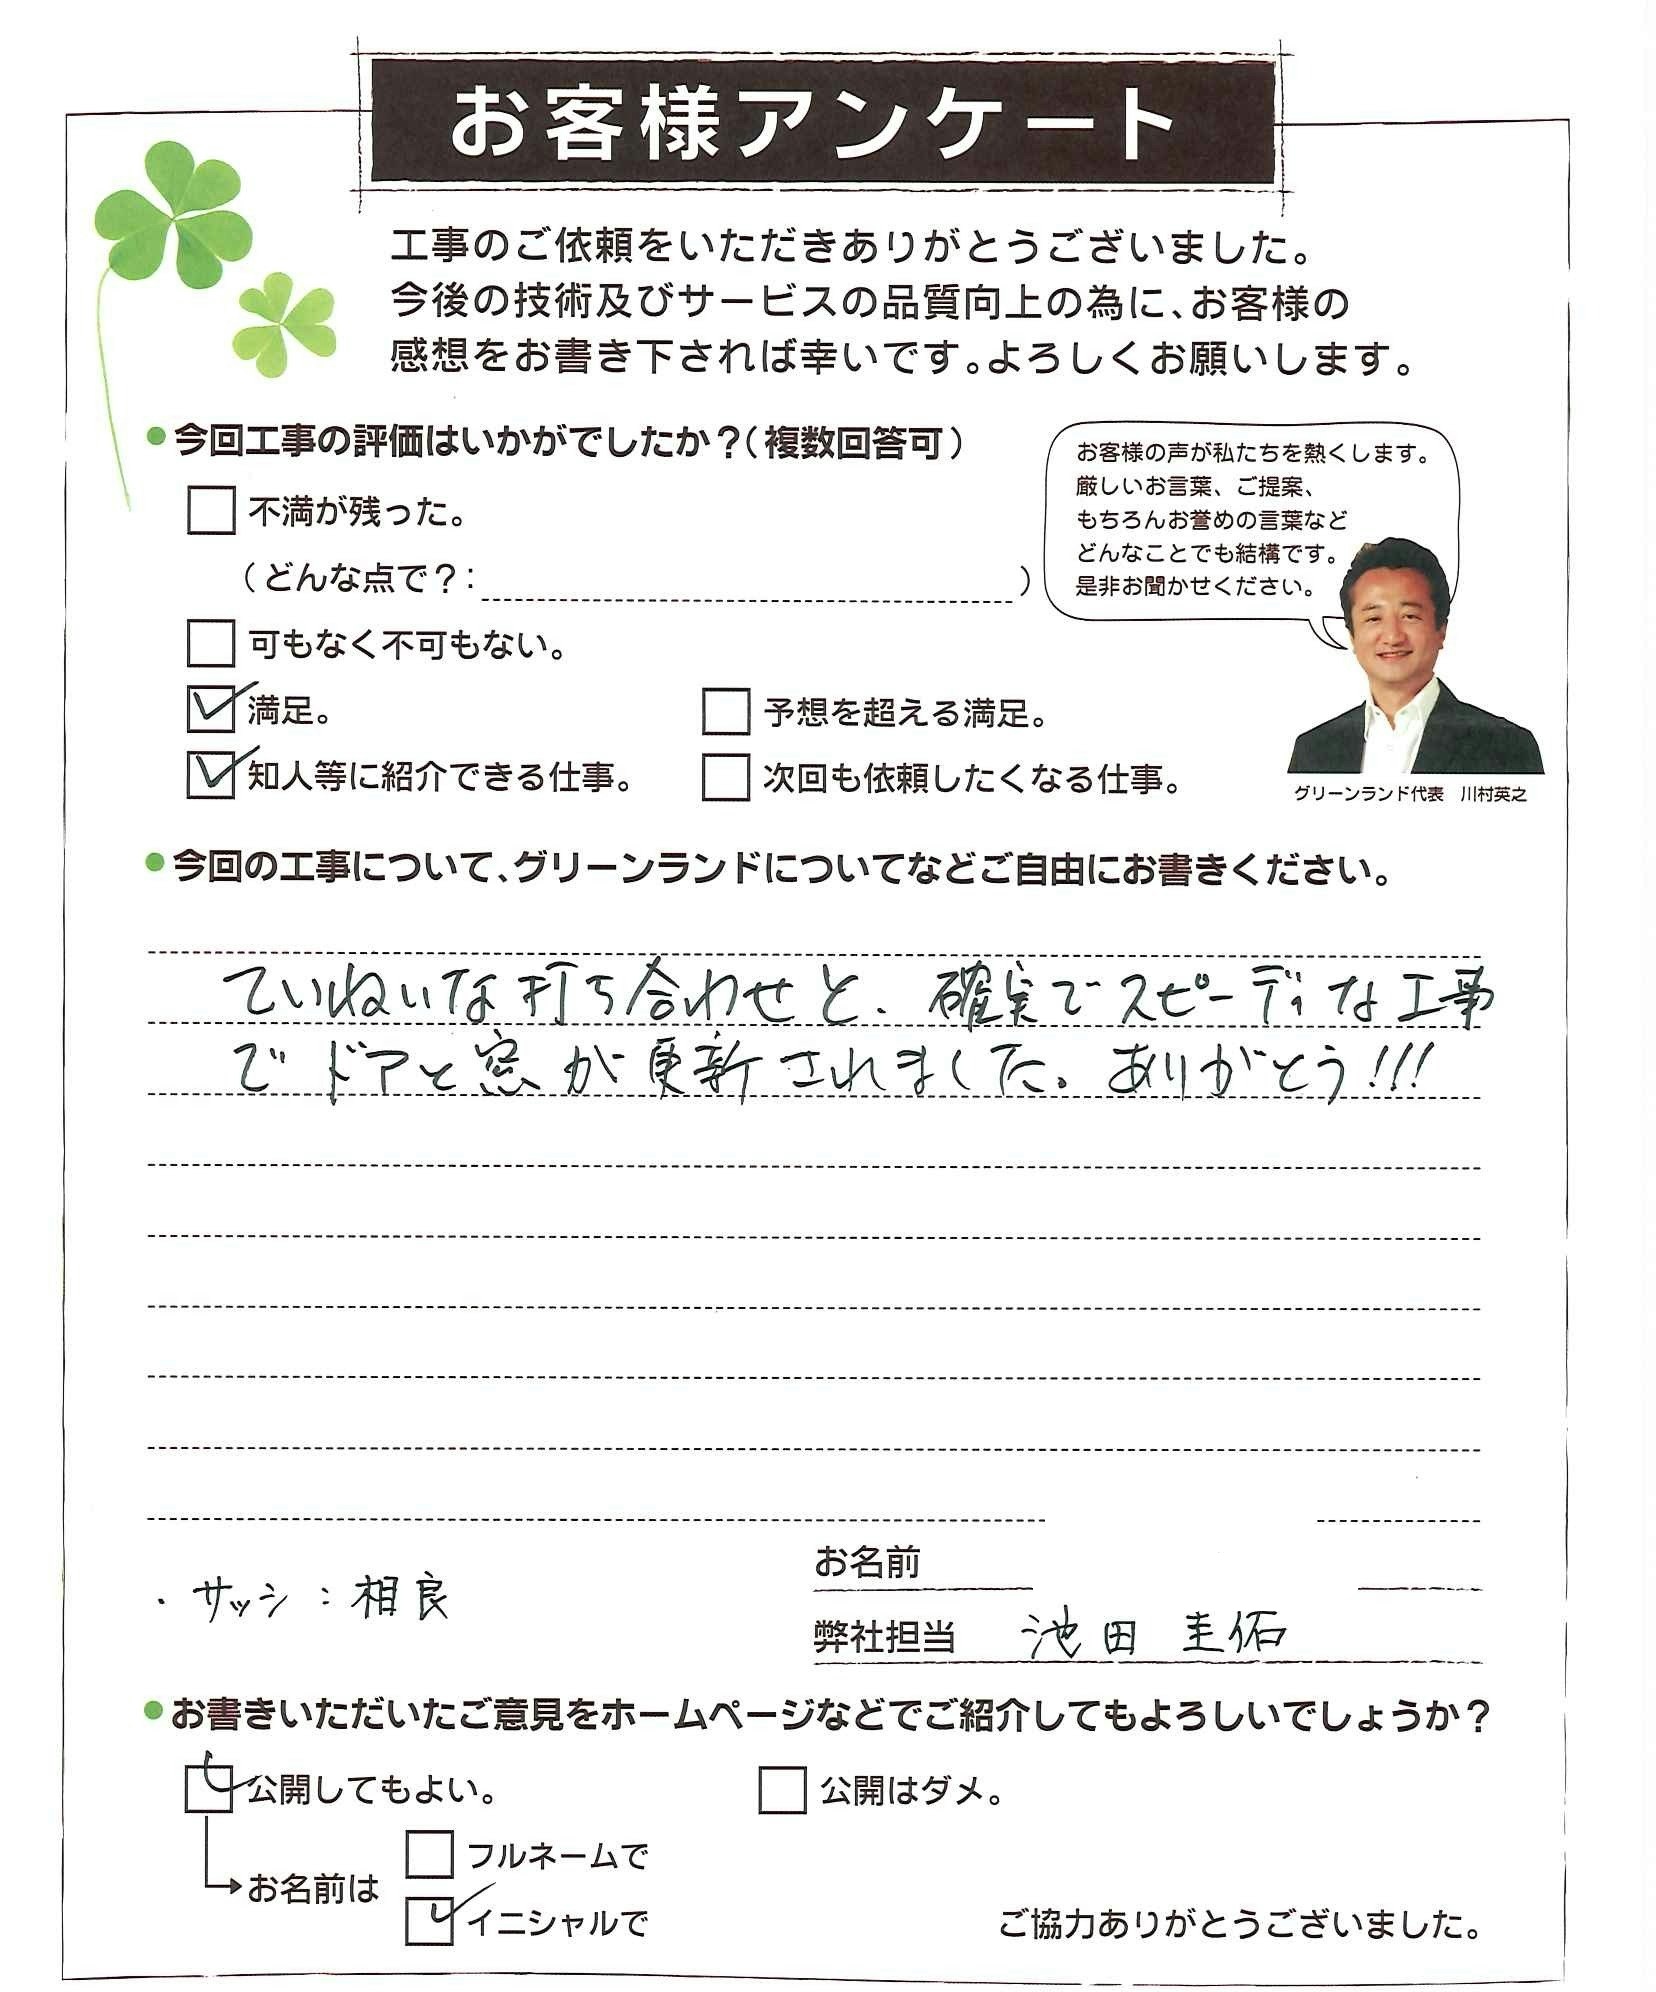 お客様アンケート
工事のご依頼をいただきありがとうございました。
今後の技術及びサービスの品質向上の為に、お客様の
感想をお書き下されば幸いです。よろしくお願いします。
●今回工事の評価はいかがでしたか？（複数回答可）
お客様の声が私たちを熱くします。
厳しいお言葉、ご提案、
もちろんお誉めの言葉など
どんなことでも結構です。
是非お聞かせください。
不満が残った。
（どんな点で？：　）
可もなく不可もない。
満足。
予想を超える満足。
知人等に紹介できる仕事。
次回も依頼したくなる仕事。
グリーンランド代表　川村英之
●今回の工事について、グリーンランドについてなどご自由にお書きください。
ていねいな打ち合わせと、確実でスピーディな工事
でドアと窓が更新されました。ありがとう!!!
お名前
・サッシ：相良
弊社担当　池田 圭佑
●お書きいただいたご意見をホームページなどでご紹介してもよろしいでしょうか？
公開してもよい。
公開はダメ。
フルネームで
お名前は
イニシャルで
ご協力ありがとうございました。